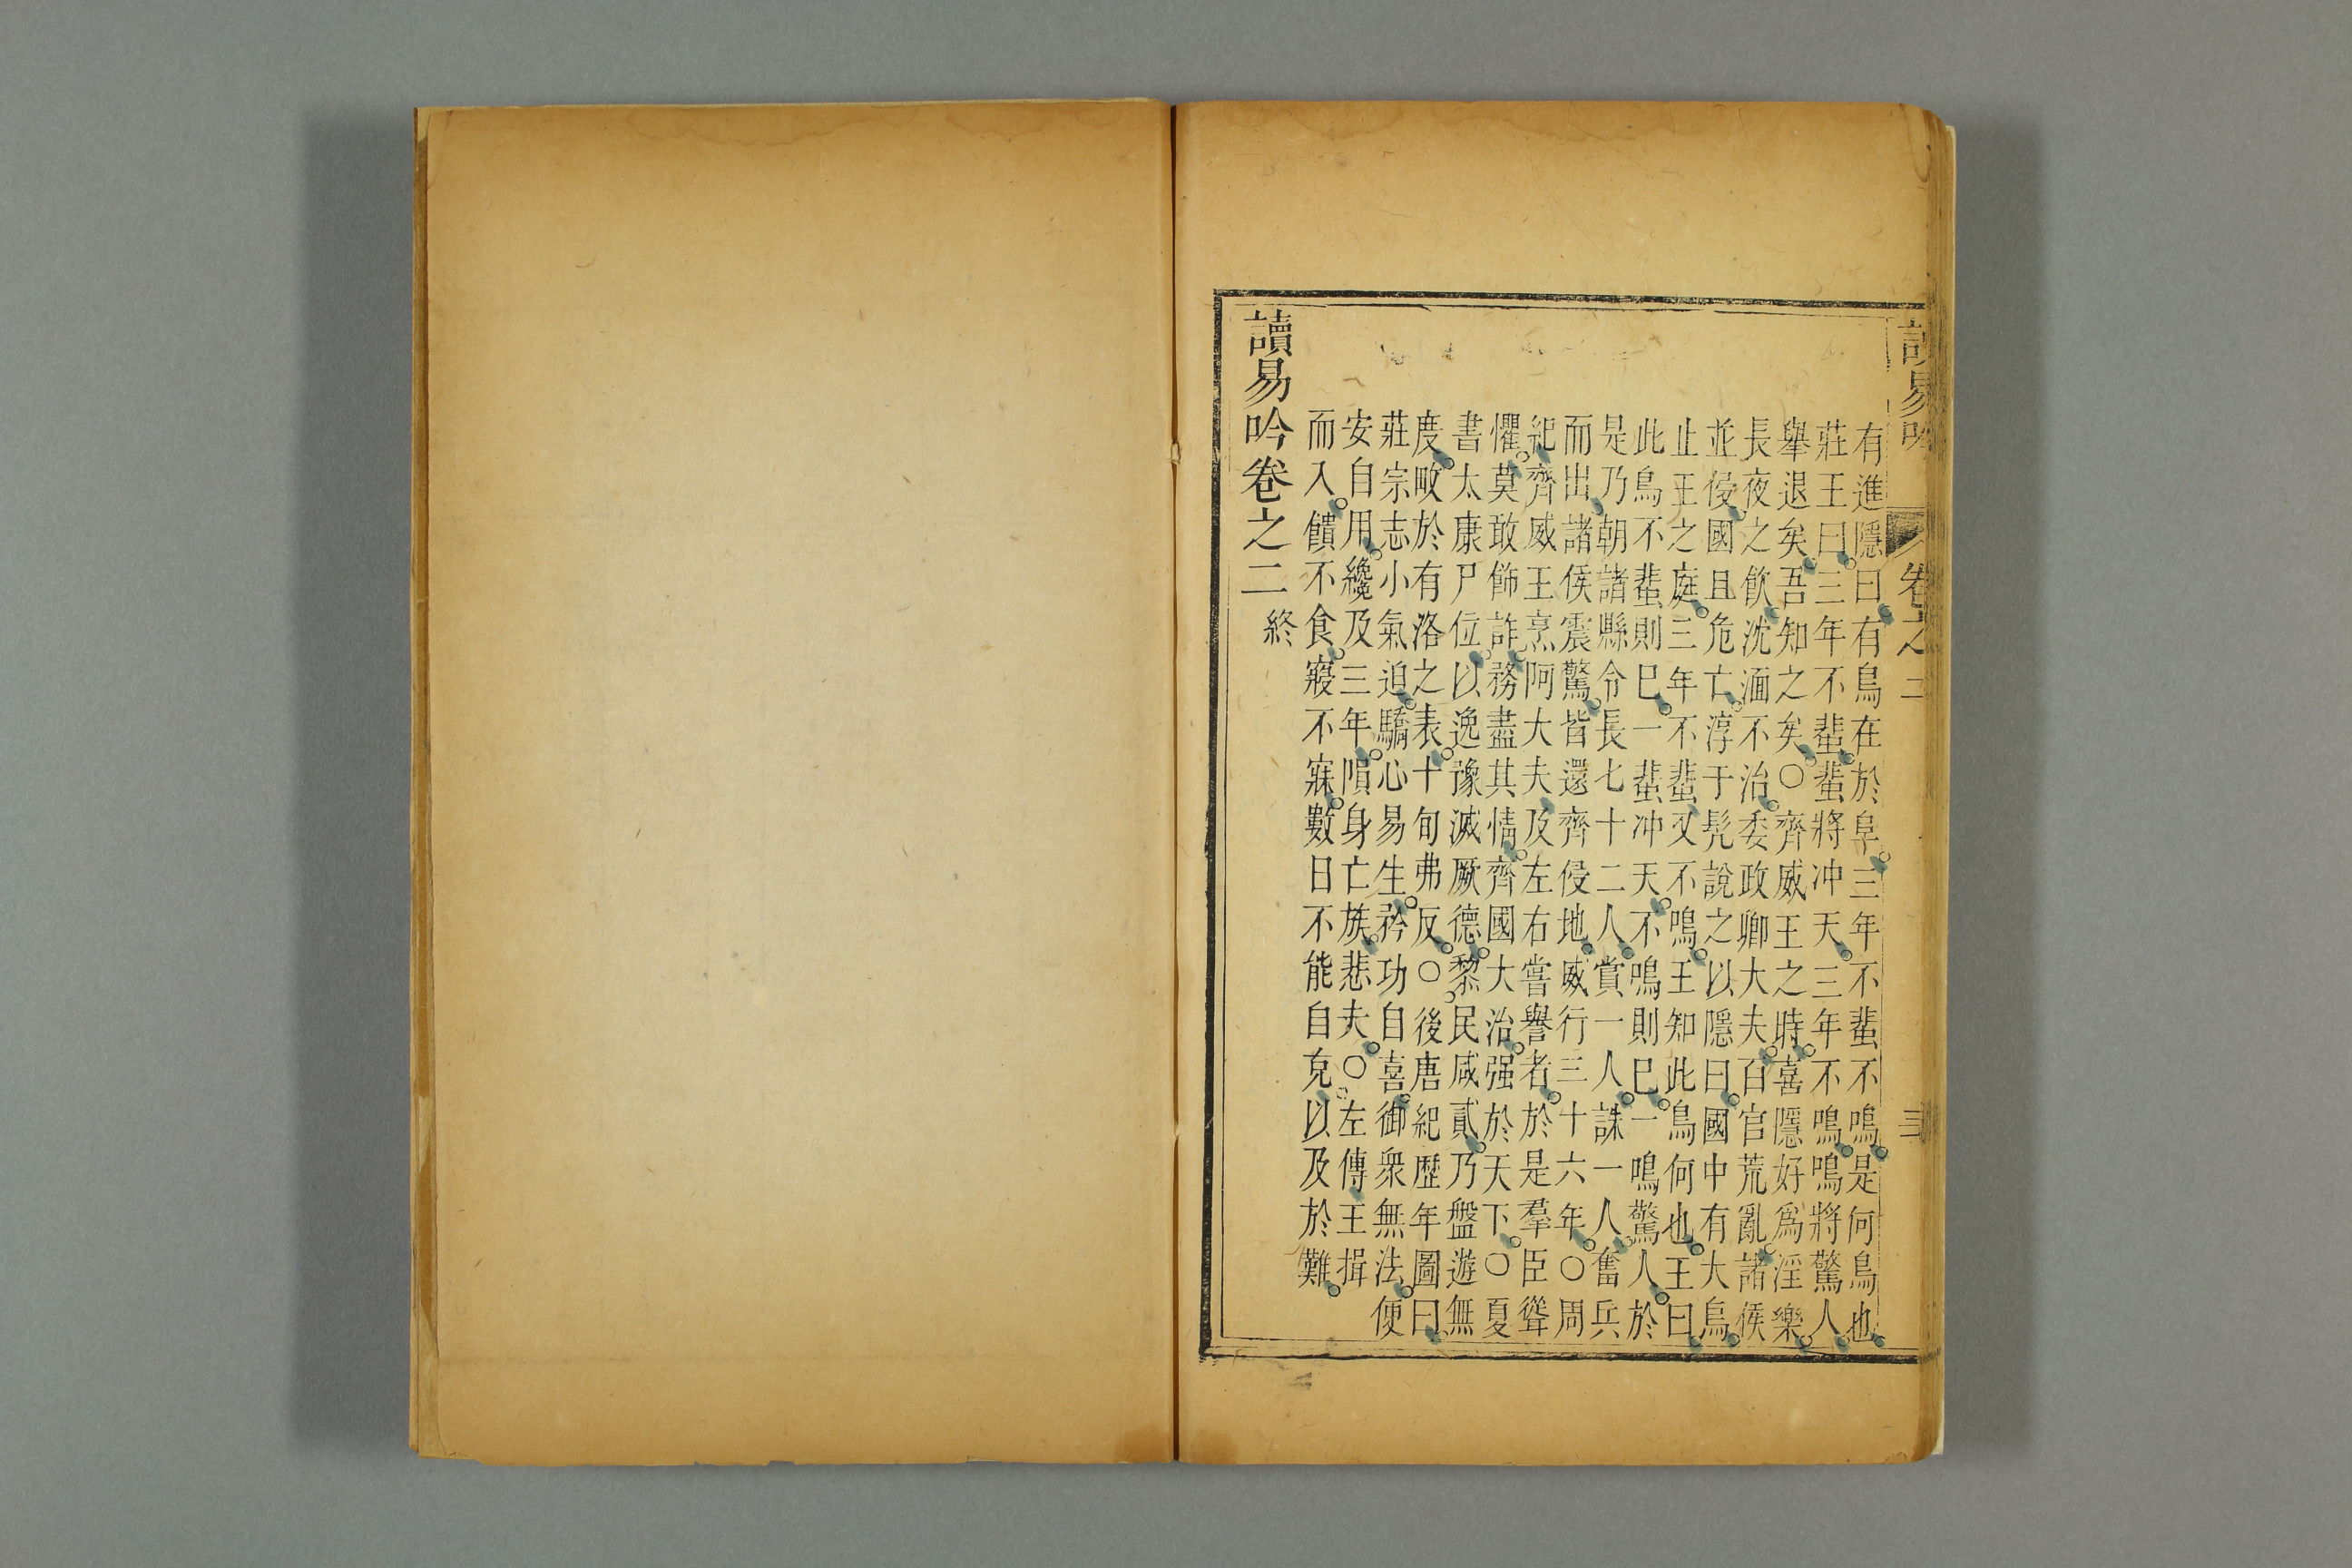 讀易吟 卷之二
有進隱曰有鳥在於阜三年不蜚不鳴是何鳥也
莊王曰三年不蜚蜚將冲天三年不鳴鳴將驚人
舉退矣吾知之矣○齊威王之時喜隱好爲淫樂
長夜之飲沈湎不治委政卿大夫百官荒亂諸侯
並侵國且危亡淳于髡說之以隱曰國中有大鳥
止王之庭三年不蜚又不鳴王知此鳥何也王曰
此鳥不蜚則巳一蜚冲天不鳴則巳一鳴驚人於
是乃朝諸縣令長七十二人賞一人誅一人奮兵
而出諸侯震驚皆還齊侵地威行三十六年○周
紀齊威王烹阿大夫及左右嘗譽者於是羣臣聳
懼莫敢飾詐務盡其情齊國大治强於天下○夏
書太康尸位以逸豫滅厥德黎民咸貳乃盤遊無
度畋於有洛之表十旬弗反○後唐紀歷年圖曰
莊宗志小氣迫驕心易生矜功自喜御衆無法便
安自用纔及三年隕身亡族悲夫○左傳王揖
而入饋不食寢不寐數日不能自克以及於難
讀易吟卷之二終